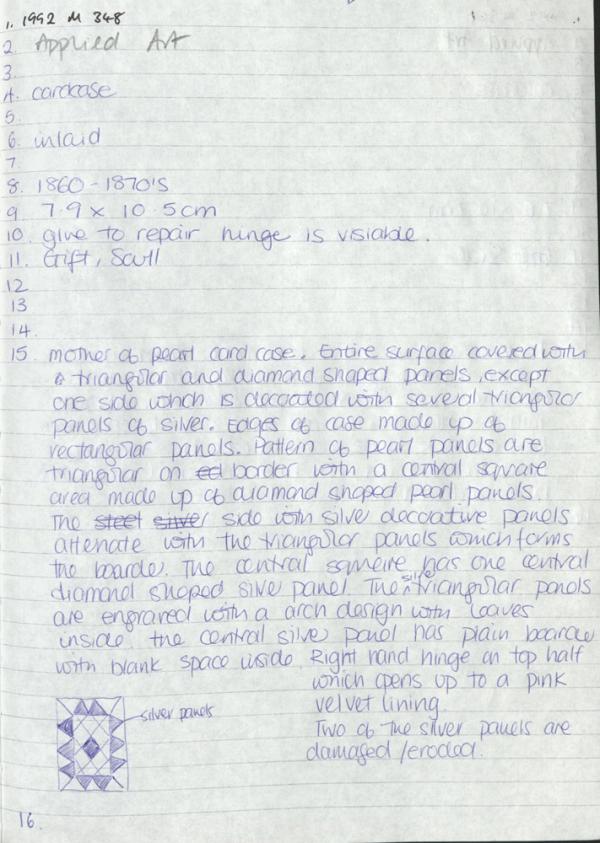 1. 1992 M 348
2. Applied Art
3.
4. cardcase
5.
6. inlaid
7.
8. 1860-1870's
9. 7.9 x 10.5cm
10. glue to repair hinge is visiable.
11. Gift,
12
13
14.
15 mother of pearl card case. Entire surface covered with
triangular and diamond shaped panels, except
one side which is decorated with several triangular
panels of silver. Edges of case made up of
rectangular panels. Pattern of pearl panels are
triangular on ed border with a central square
area made up of diamond shaped pearl panels.
The steel silver side with silver decorative panels
attenate with the triangular panels which forms
the boarder. The central square has one central
diamond shaped silver panel. The silver triangular panels
are engraved with a arch design with leaves
inside, the central silver panel has plain boarder
with blank space inside. Right hand hinge on top half
which opens up to a pink
velvet lining.
silver panels
Two of the silver panels are
damaged/eroded.
16.